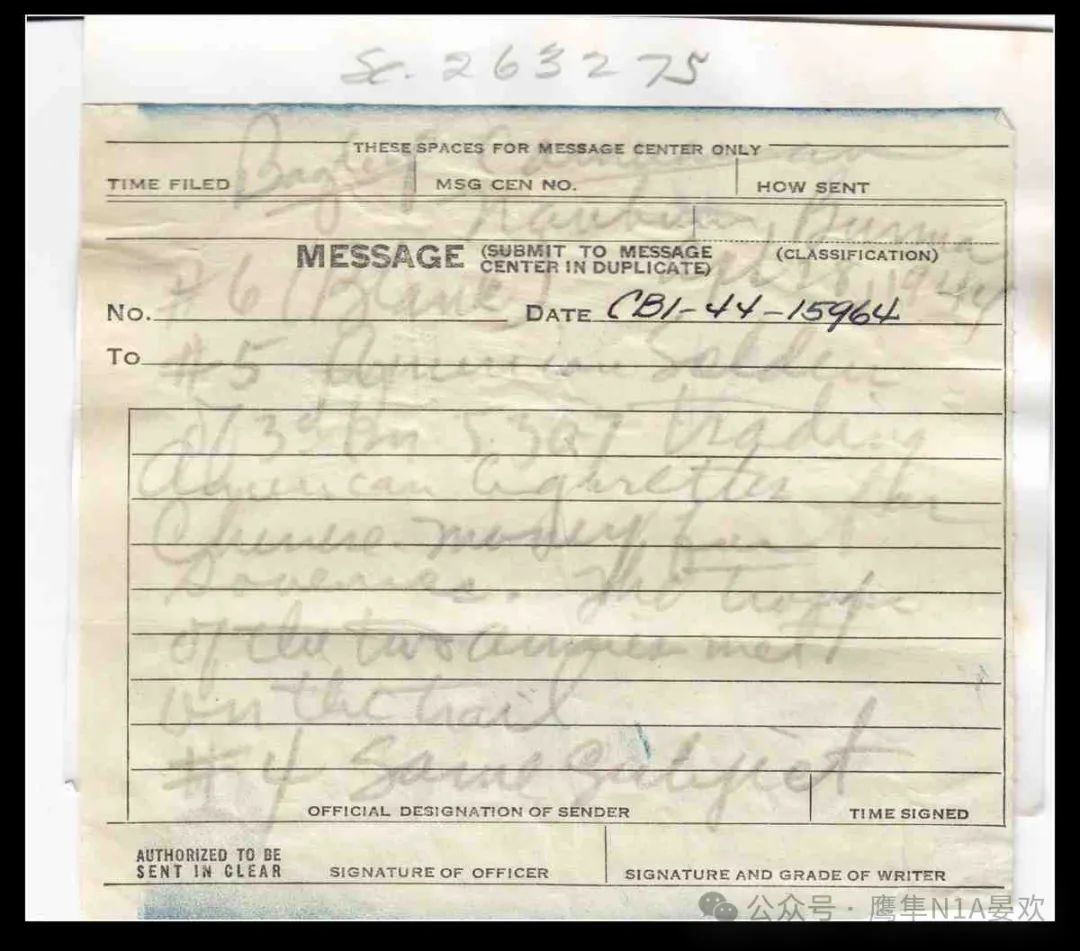 Sc. 263275
THESE SPACES FOR MESSAGE CENTER ONLY
TIME FILED
MSG CEN NO.
HOW SENT
Burma
MESSAGE (SUBMIT TO MESSAGE CENTER IN DUPLICATE)
(CLASSIFICATION)
#6 (Blank) 1944
No.
DATE CBI-44-15964
To
#5 American Soldier
of 3d Bn 5307 trading
American Cigarettes for
Chinese money for
Souvenirs. The troops
of the two armies met
on the trail
#4 Same Subject
OFFICIAL DESIGNATION OF SENDER
TIME SIGNED
AUTHORIZED TO BE
SENT IN CLEAR
SIGNATURE OF OFFICER
SIGNATURE AND GRADE OF WRITER
公众号 · 鹰隼N1A晏欢